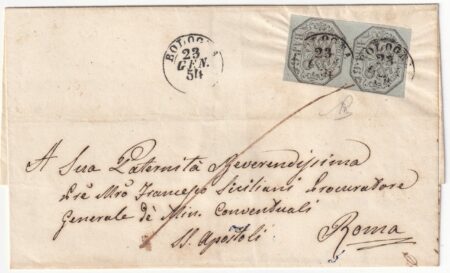 BOLOGNA
23
GEN.
54
BOLOGNA
23
BOLOGNA
23
A Sua Paternità Reverendissima
Pre Mro Francesco Siciliani Procuratore
Generale de Min. Conventuali
SS. Apostoli
Roma